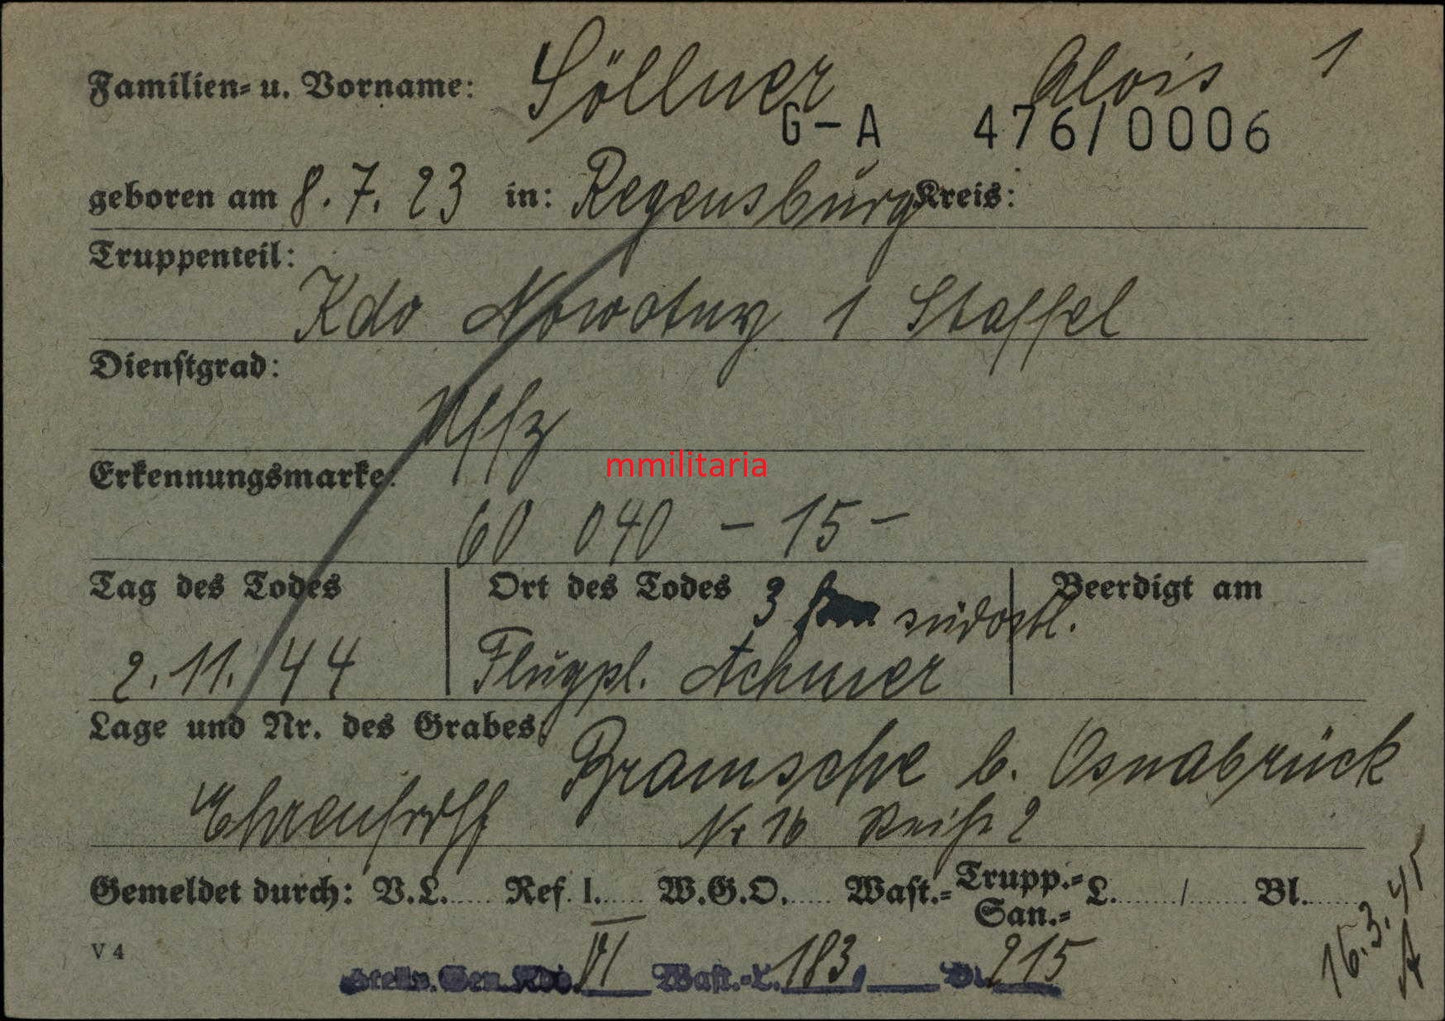 Familien- u. Vorname: Söllner Alois 1
G-A 476/0006
geboren am 8.7.23 in: Regensburg Kreis:
Truppenteil:
Kdo Nowotny 1 Staffel
Dienstgrad:
Uffz
mmilitaria
Erkennungsmarke:
60 040 - 15 -
Tag des Todes Ort des Todes 3 km südostl. Beerdigt am
2.11.44 Flugpl. Achmer
Lage und Nr. des Grabes:
Bramsche b. Osnabrück
Ehrenfriedhf Nr 16 Reihe 2
Gemeldet durch: V.L..... Ref. I..... W.G.O..... Wast.- Trupp.- San.- L....../...... Bl......
V 4
Stellv. Gen. Kdo. VI Wast.-L. 183/ Bl. 215
16.3.45